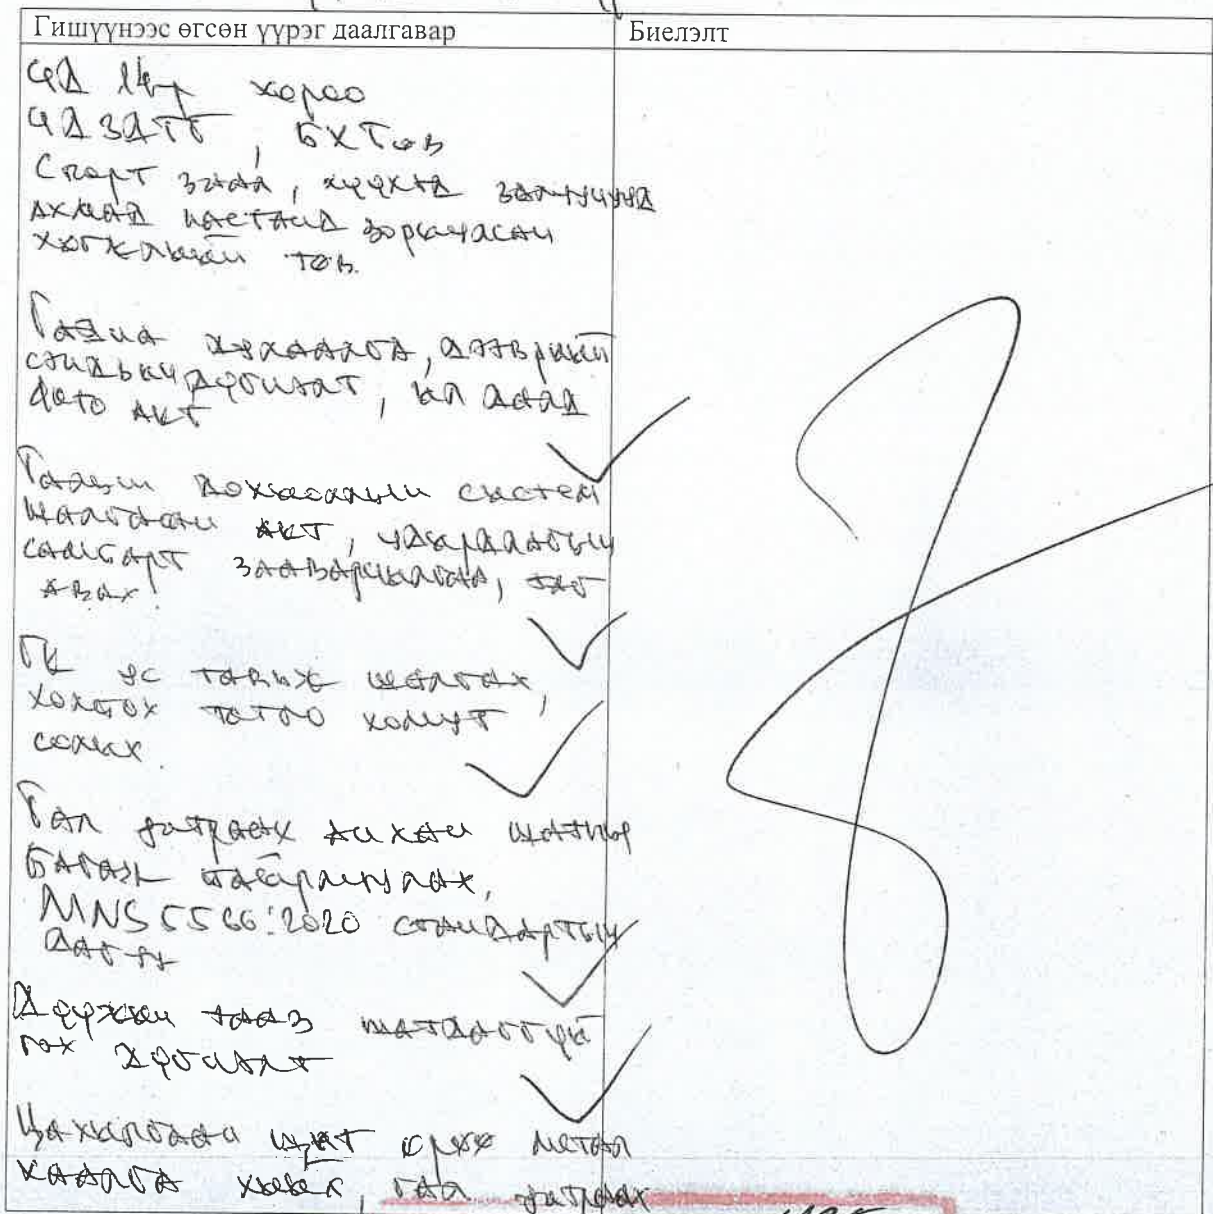 Гишүүнээс өгсөн үүрэг даалгавар
Биелэлт
ЧД 14-р хороо
ЧДЗДТГ, БХТөв
Спорт заал, хүүхэд залуучууд
ахмад настанд зориулсан
хөгжлийн төв.
Гадна хаалга,
дүгнэлт, ил далд
акт
Галын дохиолол систем
шалгасан акт, удирдлагын
самбарт зааварчилгаа,
авах
ГК ус тавих шалгах,
холбох хомут
солих.
Гал унтраах анхан шатны
багаж
MNS 5566:2020 стандартын
дагуу
Дүүжин тааз шатдаггүй
гэх дүгнэлт
Цахилгаан щит өрөө метал
хаалга хийх, гал унтраах